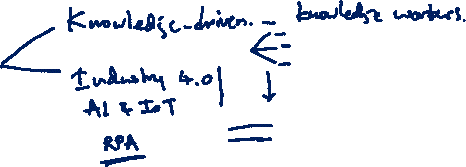 Knowledge-driven. - knowledge workers.
Industry 4.0
AI & IoT
RPA